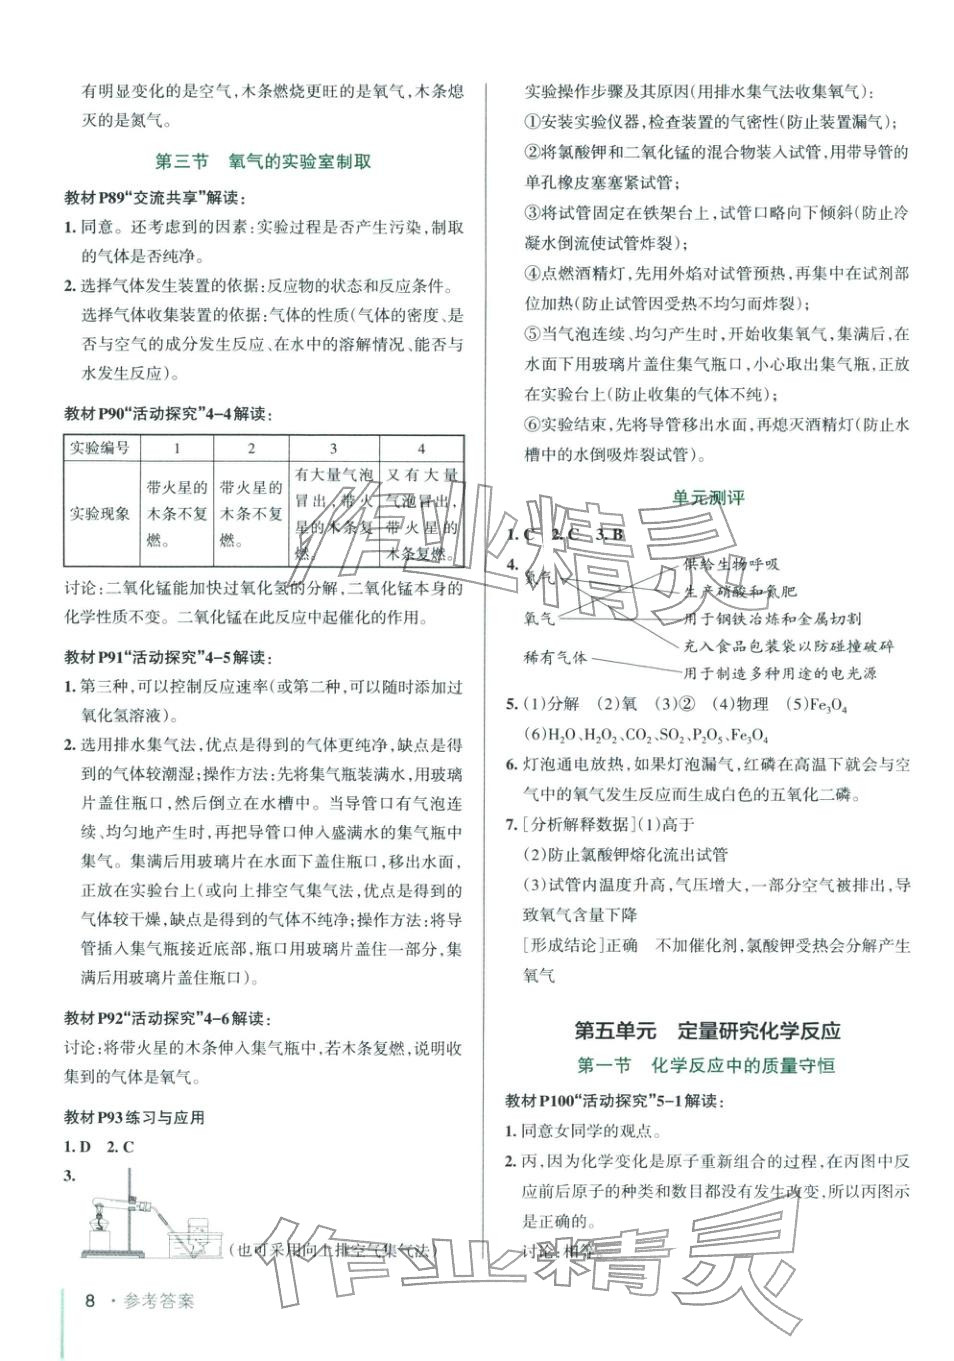 有明显变化的是空气,木条燃烧更旺的是氧气,木条熄
灭的是氮气。
第三节 氧气的实验室制取
教材P89“交流共享”解读:
1. 同意。还考虑到的因素:实验过程是否产生污染,制取
的气体是否纯净。
2. 选择气体发生装置的依据:反应物的状态和反应条件。
选择气体收集装置的依据:气体的性质(气体的密度、是
否与空气的成分发生反应、在水中的溶解情况、能否与
水发生反应)。
教材P90“活动探究”4-4解读:
实验编号 1 2 3 4
实验现象
带火星的
木条不复
燃。
带火星的
木条不复
燃。
有大量气泡
冒出,带火
星的木条复
燃。
又有大量
气泡冒出,
带火星的
木条复燃。
讨论:二氧化锰能加快过氧化氢的分解,二氧化锰本身的
化学性质不变。二氧化锰在此反应中起催化的作用。
教材P91“活动探究”4-5解读:
1. 第三种,可以控制反应速率(或第二种,可以随时添加过
氧化氢溶液)。
2. 选用排水集气法,优点是得到的气体更纯净,缺点是得
到的气体较潮湿;操作方法:先将集气瓶装满水,用玻璃
片盖住瓶口,然后倒立在水槽中。当导管口有气泡连
续、均匀地产生时,再把导管口伸入盛满水的集气瓶中
集气。集满后用玻璃片在水面下盖住瓶口,移出水面,
正放在实验台上(或向上排空气集气法,优点是得到的
气体较干燥,缺点是得到的气体不纯净;操作方法:将导
管插入集气瓶接近底部,瓶口用玻璃片盖住一部分,集
满后用玻璃片盖住瓶口)。
教材P92“活动探究”4-6解读:
讨论:将带火星的木条伸入集气瓶中,若木条复燃,说明收
集到的气体是氧气。
教材P93练习与应用
1. D 2. C
3.
(也可采用向上排空气集气法)
实验操作步骤及其原因(用排水集气法收集氧气):
①安装实验仪器,检查装置的气密性(防止装置漏气);
②将氯酸钾和二氧化锰的混合物装入试管,用带导管的
单孔橡皮塞塞紧试管;
③将试管固定在铁架台上,试管口略向下倾斜(防止冷
凝水倒流使试管炸裂);
④点燃酒精灯,先用外焰对试管预热,再集中在试剂部
位加热(防止试管因受热不均匀而炸裂);
⑤当气泡连续、均匀产生时,开始收集氧气,集满后,在
水面下用玻璃片盖住集气瓶口,小心取出集气瓶,正放
在实验台上(防止收集的气体不纯);
⑥实验结束,先将导管移出水面,再熄灭酒精灯(防止水
槽中的水倒吸炸裂试管)。
单元测评
1. C 2. C 3. B
4.
氮气
氧气
稀有气体
供给生物呼吸
生产硝酸和氮肥
用于钢铁冶炼和金属切割
充入食品包装袋以防碰撞破碎
用于制造多种用途的电光源
5. (1)分解 (2)氧 (3)② (4)物理 (5)Fe₃O₄
(6)H₂O、H₂O₂、CO₂、SO₂、P₂O₅、Fe₃O₄
6. 灯泡通电放热,如果灯泡漏气,红磷在高温下就会与空
气中的氧气发生反应而生成白色的五氧化二磷。
7. [分析解释数据](1)高于
(2)防止氯酸钾熔化流出试管
(3)试管内温度升高,气压增大,一部分空气被排出,导
致氧气含量下降
[形成结论]正确 不加催化剂,氯酸钾受热会分解产生
氧气
第五单元 定量研究化学反应
第一节 化学反应中的质量守恒
教材P100“活动探究”5-1解读:
1. 同意女同学的观点。
2. 丙,因为化学变化是原子重新组合的过程,在丙图中反
应前后原子的种类和数目都没有发生改变,所以丙图示
是正确的。
讨论:相等。
8 · 参考答案
作业精灵
作业精灵